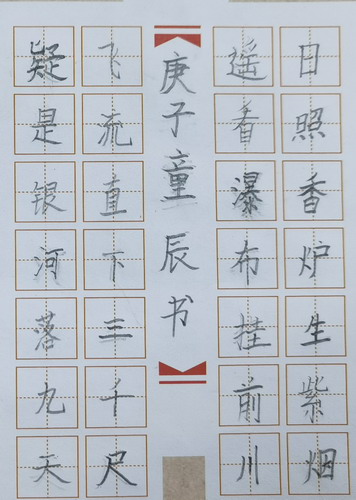 日照香炉生紫烟
遥看瀑布挂前川
庚子童辰书
飞流直下三千尺
疑是银河落九天